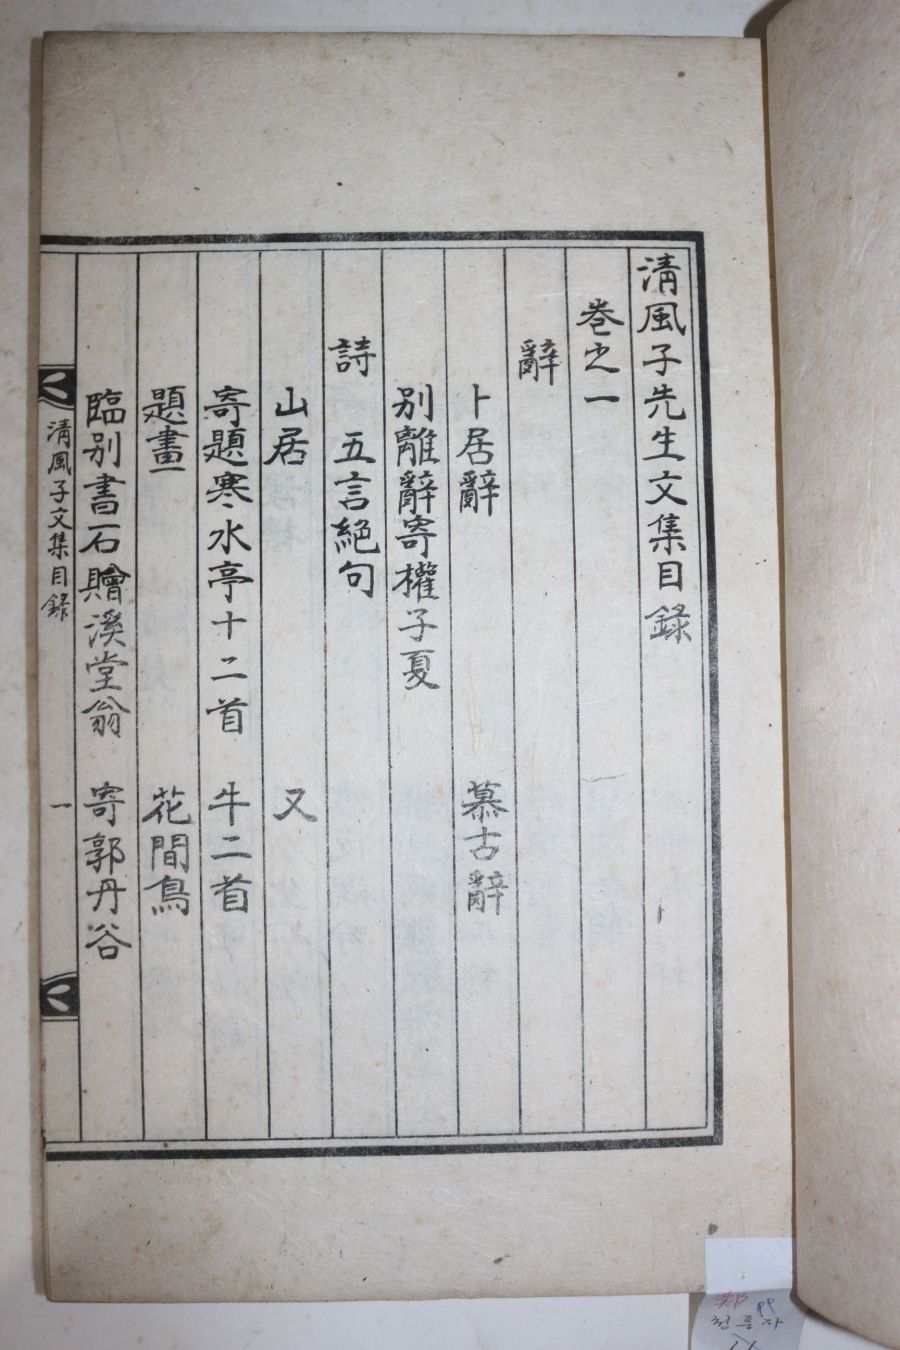 清風子先生文集目錄
卷之一
辭
卜居辭 慕古辭
別離辭寄權子夏
詩 五言絕句
山居 又
寄題寒水亭十二首 牛二首
題畫 花間鳥
臨別書石贈溪堂翁 寄郭丹谷
清風子文集目錄 一
鄭
청풍자